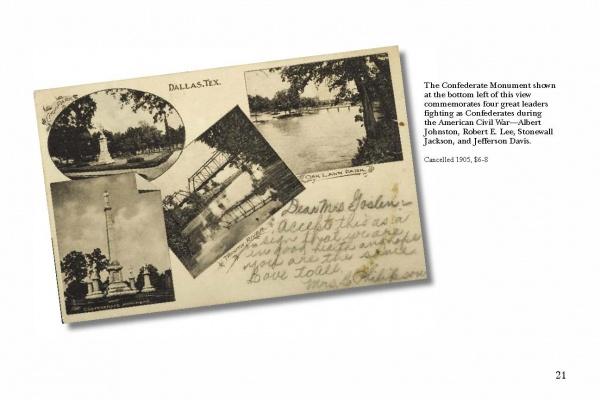 DALLAS, TEX.
CITY PARK
OAK LAWN PARK
TRINITY RIVER
CONFEDERATE MONUMENT
Dear Mrs Goslin:-
Accept this as a
sign that we are
in good health and hope
you are the same
Love to all.
Mrs. G.
The Confederate Monument shown
at the bottom left of this view
commemorates four great leaders
fighting as Confederates during
the American Civil War—Albert
Johnston, Robert E. Lee, Stonewall
Jackson, and Jefferson Davis.
Cancelled 1905, $6-8
21